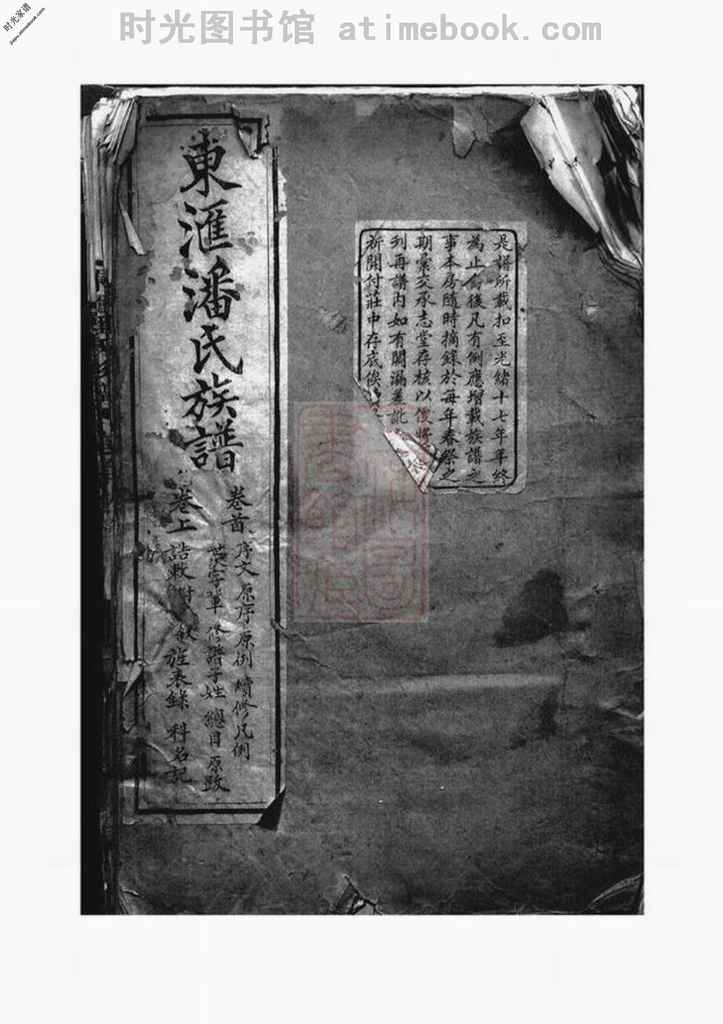 时光家谱
时光图书馆 atimebook.com
是譜所載扣至光緒十七年年終
為止嗣後凡有例應增載族譜之
事本房隨時摘錄於每年春祭之
期彙交承志堂存核以俟將
刋再譜內如有闕漏差訛
新開付莊中存底俟
東滙潘氏族譜
卷首
序文 原序 原例 續修凡例
修譜子姓 總目 原跋
卷上
誥敕 旌表錄 科名記